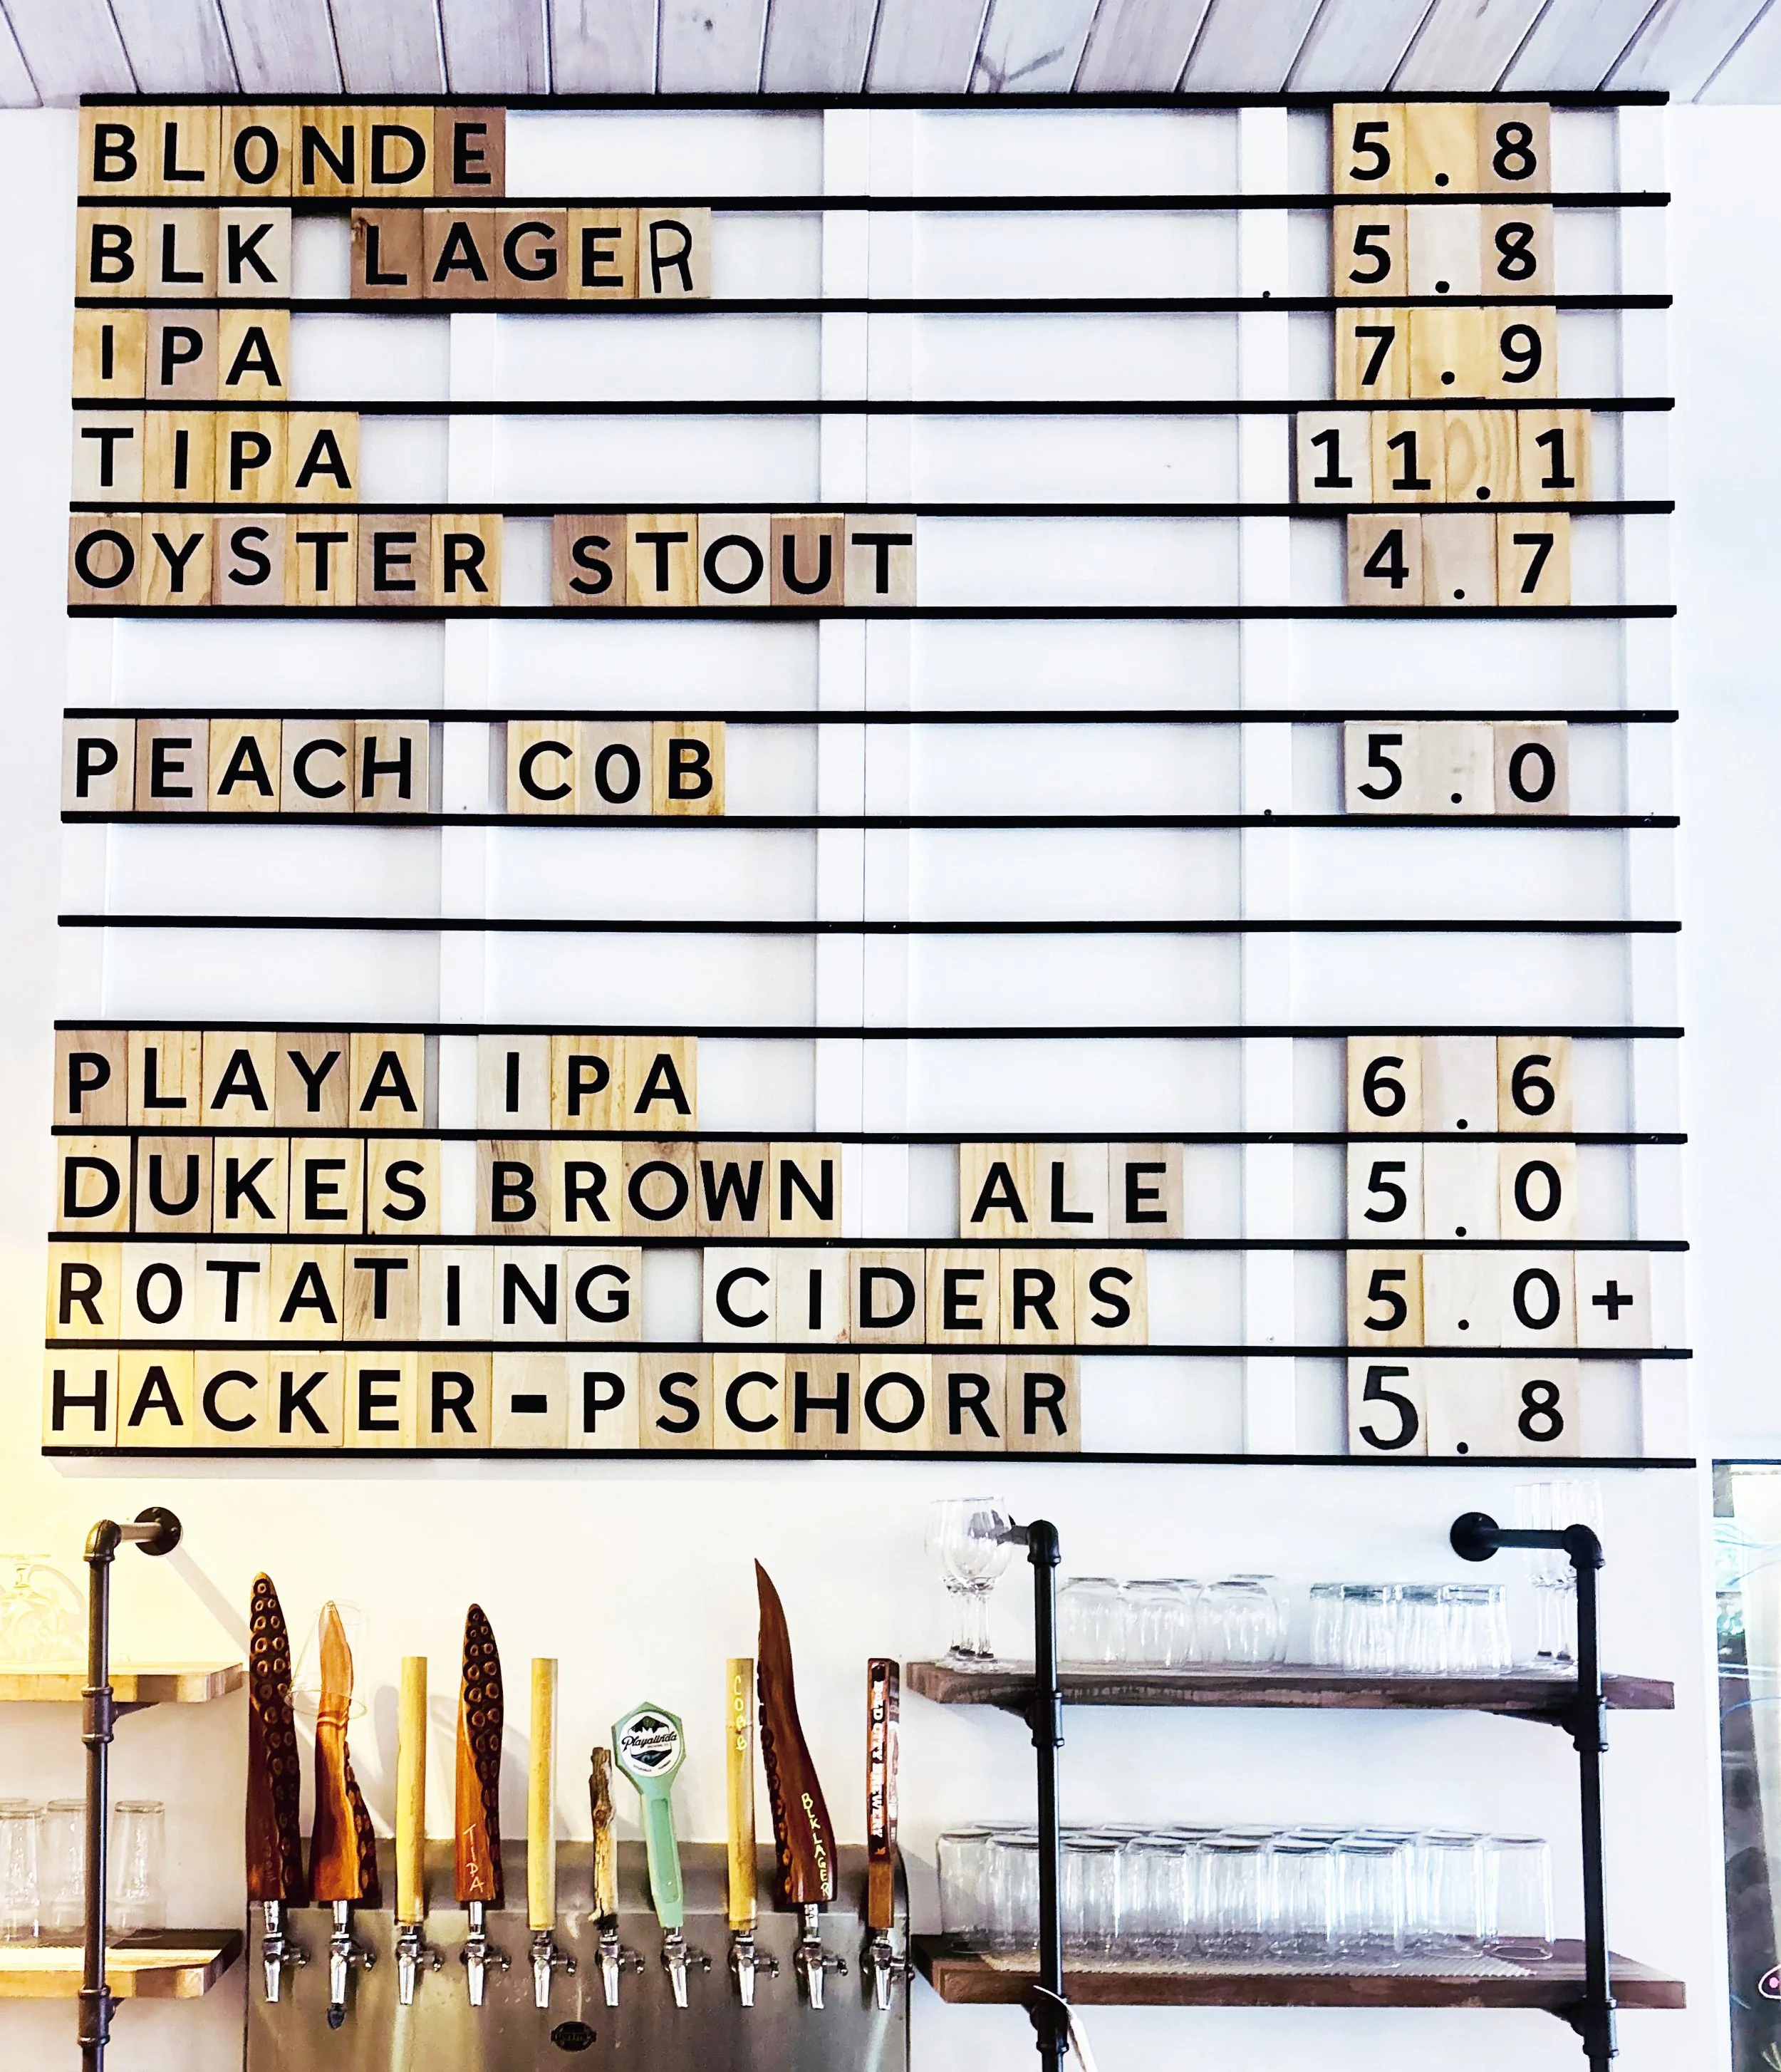 BLONDE 5.8
BLK LAGER 5.8
IPA 7.9
TIPA 11.1
OYSTER STOUT 4.7
PEACH COB 5.0
PLAYA IPA 6.6
DUKES BROWN ALE 5.0
ROTATING CIDERS 5.0+
HACKER-PSCHORR 5.8
TIPA
Playalinda
COBB
BLK LAGER
BREWERY